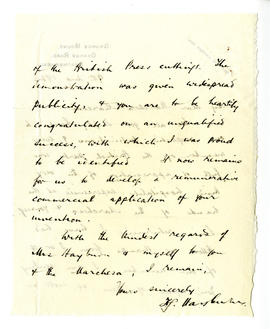 of the British Press cuttings. The
demonstration was given widespread
publicity, & you are to be heartily
congratulated on an unqualified
success, with which I was proud
to be identified. It now remains
for us to develop a remunerative
commercial application of your
invention.
With the kindest regards of
Mrs & myself to you
& the Marchesa, I remain,
Yours sincerely